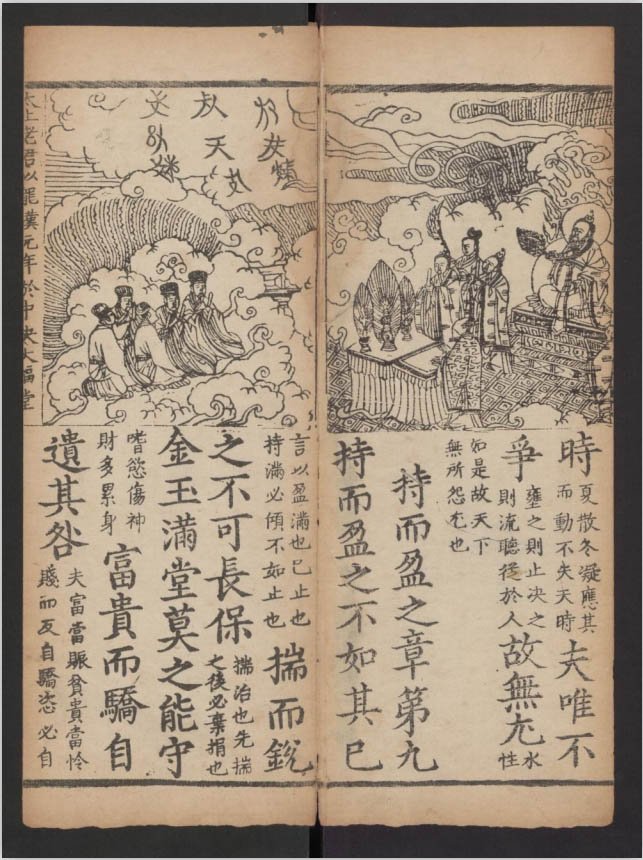 時
夏散冬凝應其
而動不失天時
夫唯不
爭
壅之則止决之
則流聽從於人
故無尤
水
性
如是故天下
無所怨尤也
持而盈之章第九
持而盈之不如其已
言以盈滿也已止也
持滿必傾不如止也
揣而銳
之不可長保
揣治也先揣
之後必棄捐也
金玉滿堂莫之能守
嗜慾傷神
財多累身
富貴而驕自
遺其咎
夫富當賑貧貴當怜
賤而反自驕恣必自
太上老君以罷漢元年於中央大福堂